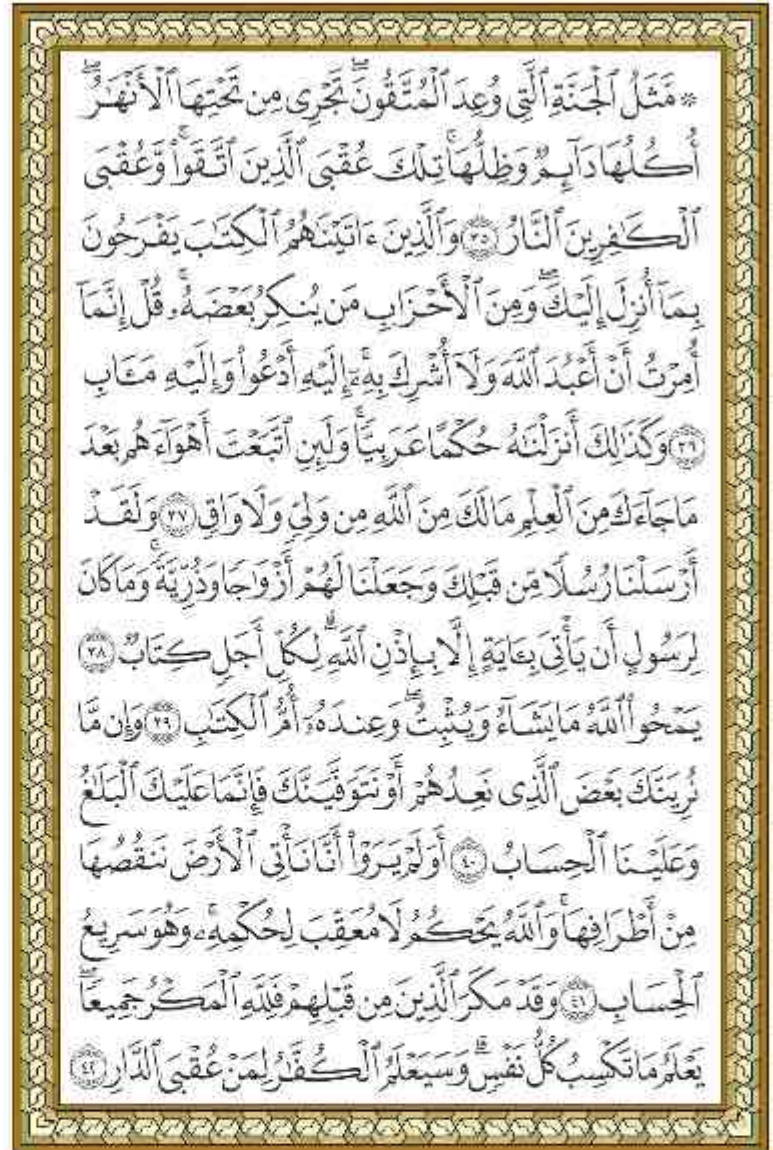 ۞ مَّثَلُ ٱلْجَنَّةِ ٱلَّتِى وُعِدَ ٱلْمُتَّقُونَۖ تَجْرِى مِن تَحْتِهَا ٱلْأَنْهَٰرُۖ
أُكُلُهَا دَآئِمٌ وَظِلُّهَاۚ تِلْكَ عُقْبَى ٱلَّذِينَ ٱتَّقَوا۟ۖ وَّعُقْبَى
ٱلْكَٰفِرِينَ ٱلنَّارُ ٣٥ وَٱلَّذِينَ ءَاتَيْنَٰهُمُ ٱلْكِتَٰبَ يَفْرَحُونَ
بِمَآ أُنزِلَ إِلَيْكَۖ وَمِنَ ٱلْأَحْزَابِ مَن يُنكِرُ بَعْضَهُۥۚ قُلْ إِنَّمَآ
أُمِرْتُ أَنْ أَعْبُدَ ٱللَّهَ وَلَآ أُشْرِكَ بِهِۦٓۚ إِلَيْهِ أَدْعُوا۟ وَإِلَيْهِ مَـَٔابِ
٣٦ وَكَذَٰلِكَ أَنزَلْنَٰهُ حُكْمًا عَرَبِيًّاۚ وَلَئِنِ ٱتَّبَعْتَ أَهْوَآءَهُم بَعْدَ
مَا جَآءَكَ مِنَ ٱلْعِلْمِ مَا لَكَ مِنَ ٱللَّهِ مِن وَلِىٍّ وَلَا وَاقٍ ٣٧ وَلَقَدْ
أَرْسَلْنَا رُسُلًا مِّن قَبْلِكَ وَجَعَلْنَا لَهُمْ أَزْوَٰجًا وَذُرِّيَّةًۚ وَمَا كَانَ
لِرَسُولٍ أَن يَأْتِىَ بِـَٔايَةٍ إِلَّا بِإِذْنِ ٱللَّهِۗ لِكُلِّ أَجَلٍ كِتَابٌ ٣٨
يَمْحُوا۟ ٱللَّهُ مَا يَشَآءُ وَيُثْبِتُۖ وَعِندَهُۥٓ أُمُّ ٱلْكِتَٰبِ ٣٩ وَإِن مَّا
نُرِيَنَّكَ بَعْضَ ٱلَّذِى نَعِدُهُمْ أَوْ نَتَوَفَّيَنَّكَ فَإِنَّمَا عَلَيْكَ ٱلْبَلَٰغُ
وَعَلَيْنَا ٱلْحِسَابُ ٤٠ أَوَلَمْ يَرَوْا۟ أَنَّا نَأْتِى ٱلْأَرْضَ نَنقُصُهَا
مِنْ أَطْرَافِهَاۚ وَٱللَّهُ يَحْكُمُ لَا مُعَقِّبَ لِحُكْمِهِۦۚ وَهُوَ سَرِيعُ
ٱلْحِسَابِ ٤١ وَقَدْ مَكَرَ ٱلَّذِينَ مِن قَبْلِهِمْ فَلِلَّهِ ٱلْمَكْرُ جَمِيعًاۖ
يَعْلَمُ مَا تَكْسِبُ كُلُّ نَفْسٍۗ وَسَيَعْلَمُ ٱلْكُفَّٰرُ لِمَنْ عُقْبَى ٱلدَّارِ ٤٢